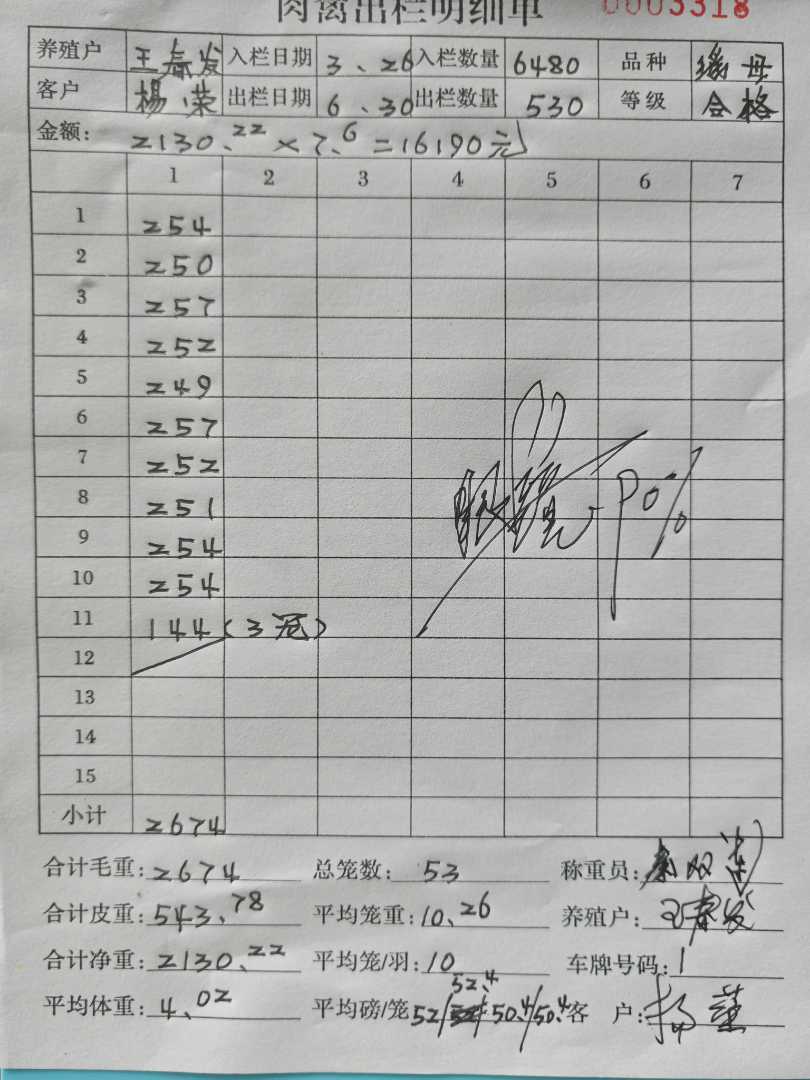 肉禽出栏明细单 0003318
养殖户 王春发 入栏日期 3、26 入栏数量 6480 品种
客户 杨荣 出栏日期 6、30 出栏数量 530 等级 合格
金额: 2130.22 × 7.6 = 16190元
1 2 3 4 5 6 7
1 254
2 250
3 257
4 252
5 249
6 257
7 252
8 251
9 254
10 254
11 144 (3笼)
12
13
14
15
小计 2674
合计毛重: 2674 总笼数: 53 称重员:
合计皮重: 543.78 平均笼重: 10.26 养殖户: 王春发
合计净重: 2130.22 平均笼/羽: 10 车牌号码: 1
平均体重: 4.02 平均磅/笼 52/ 52.4 /50.4/50.4 客户: